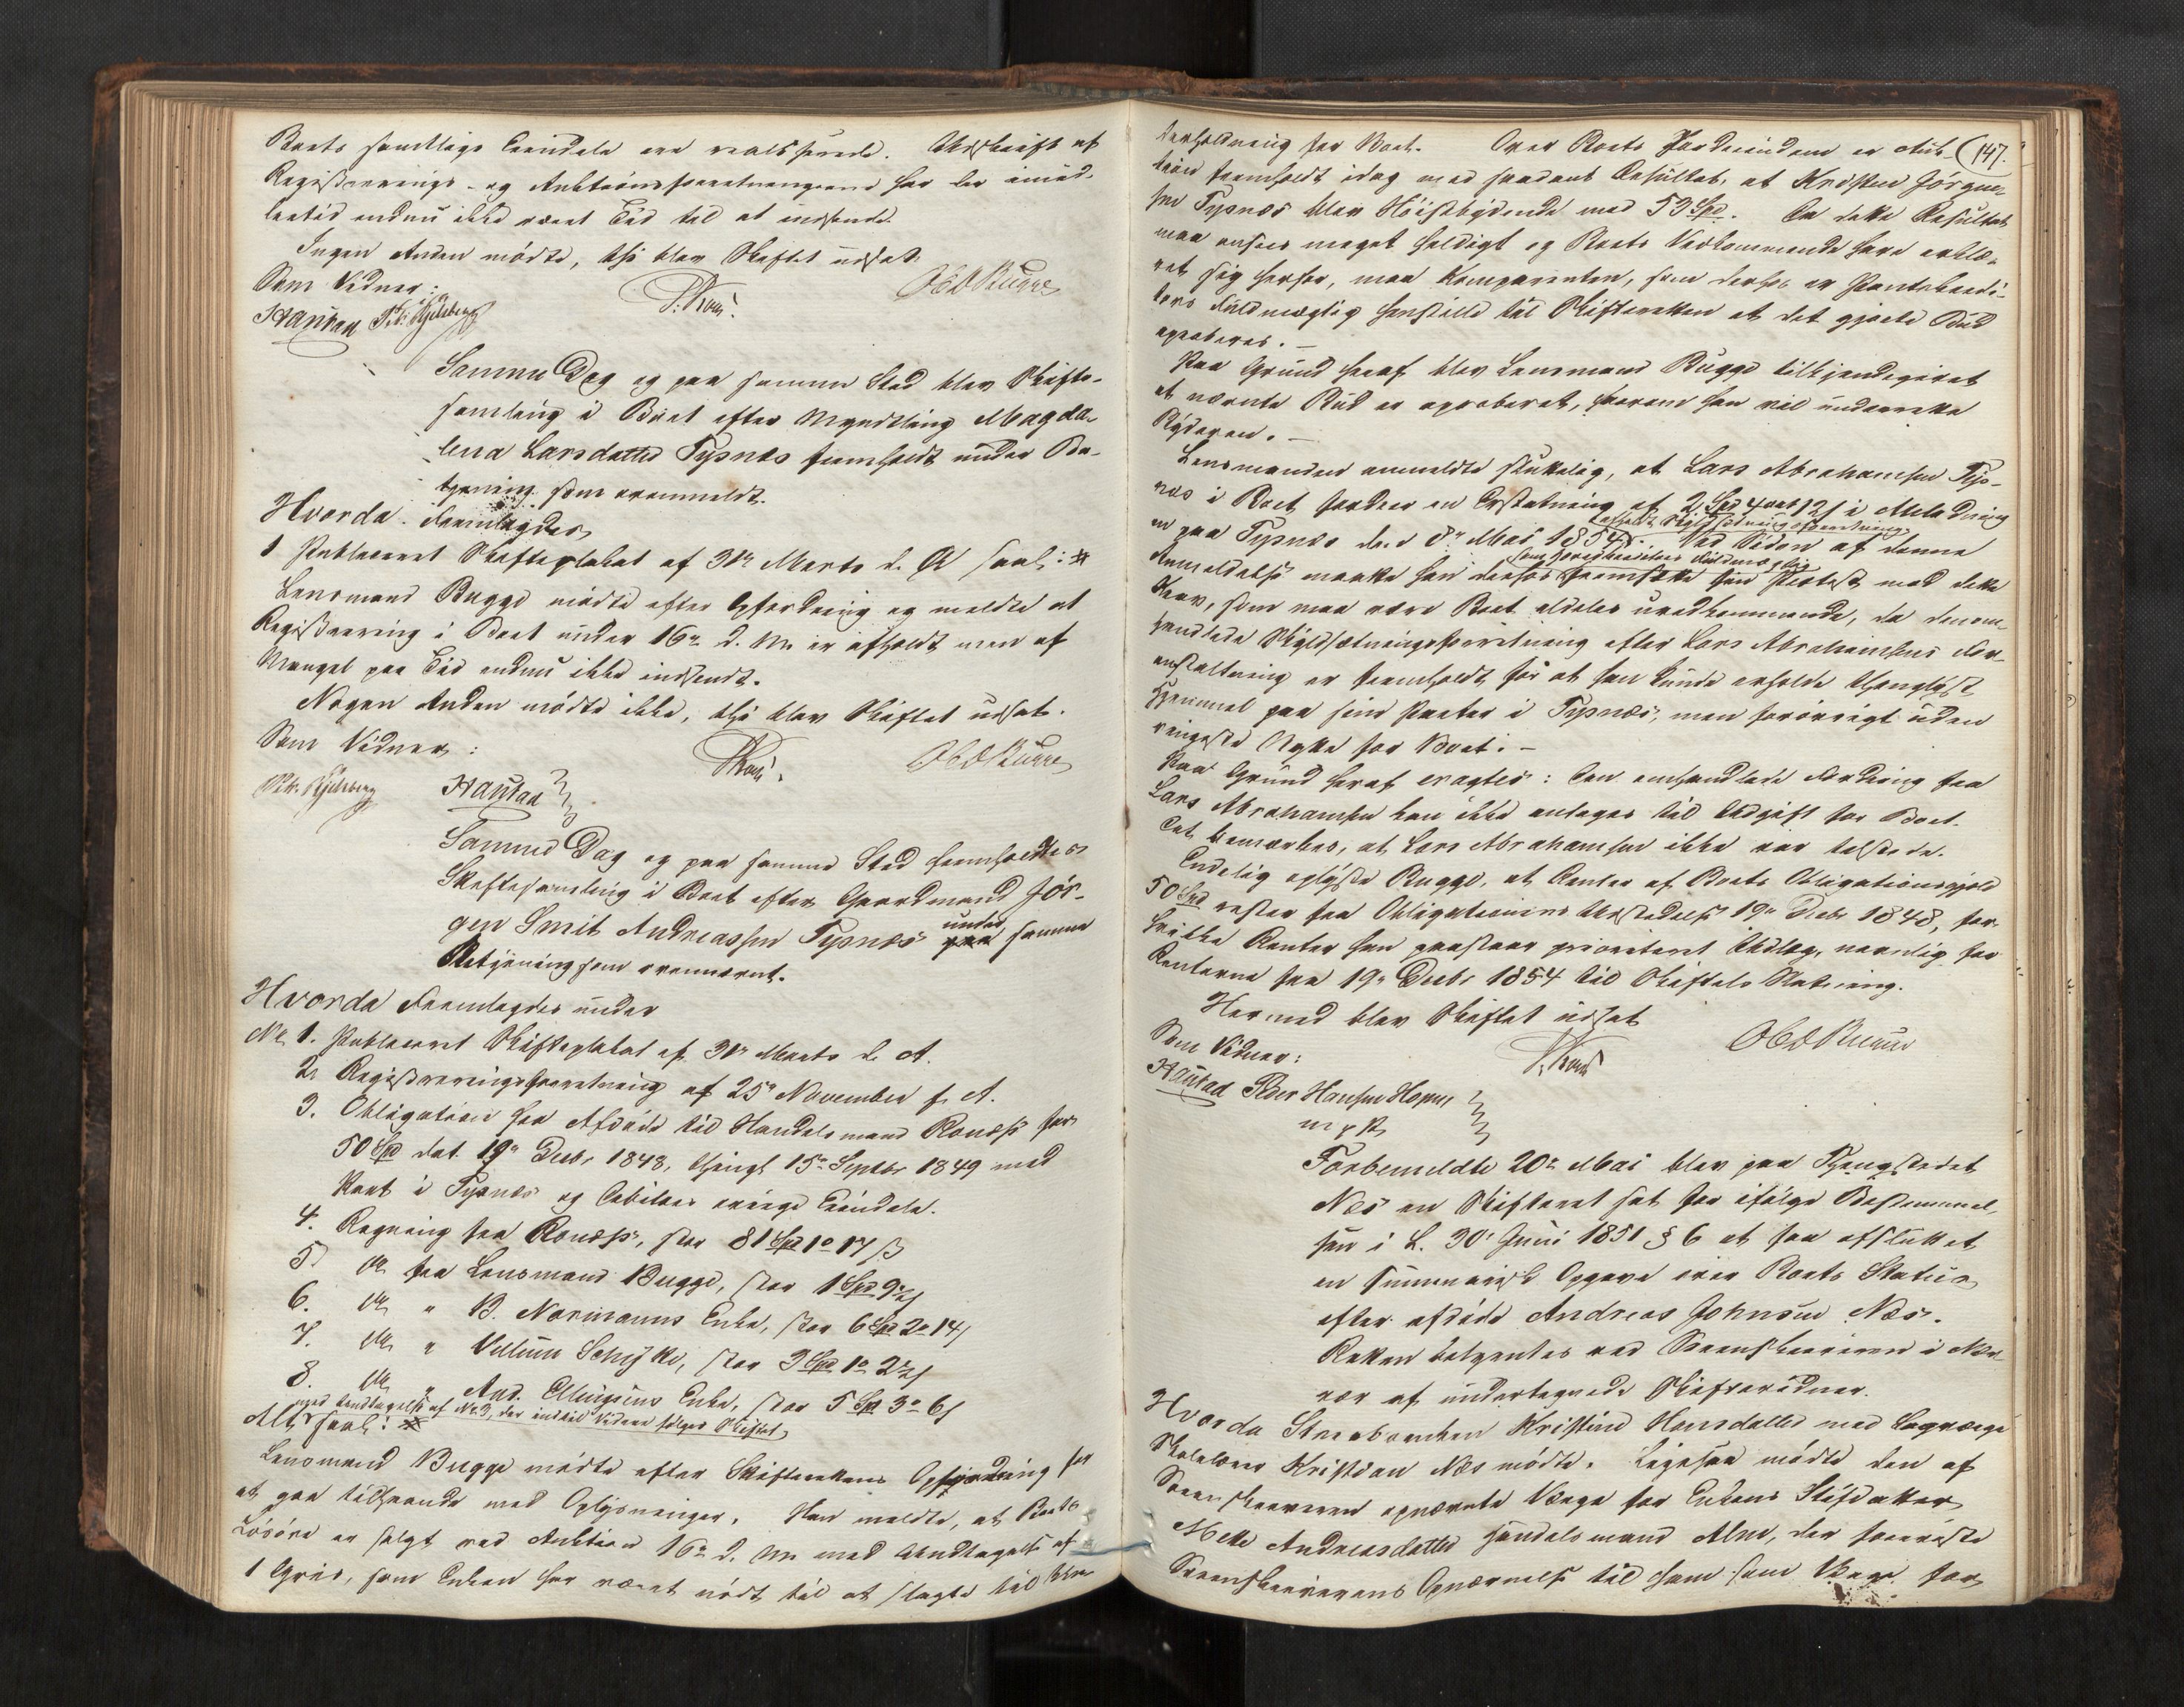 Boets samtlige Eiendele ere realiserede. Udskrift af
Registrerings- og Auktionsforretningerne har der imid-
lertid endnu ikke været Tid til at indsende.
Ingen Anden mødte, thi blev Skiftet udsat.
Som Vidner:
Haugan
Samme Dag og paa samme Sted blev Skifte-
samling i Boet efter Myndtling Magda-
lena Larsdatter Tysnes fremholdt under Be-
tjening som ovenmeldt.
Hvorda Fremlagdes
1 Publiceret Skifteplakat af 31te Marts d. A saal: #
Lensmand Bugge mødte efter Opfordring og meldte at
Registrering i Boet under 16de d. M. er afholdt men af
Mangel paa Tid endnu ikke indsendt.
Nogen Anden mødte ikke, thi blev Skiftet udsat.
Som Vidner:
Haugan
Samme Dag og paa samme Sted fremholdtes
Skiftesamling i Boet efter Gaardmand Jör-
gen Smit Andreassen Tysnes under samme
Betjening som ovennævnt.
Hvorda Fremlagdes under
No 1. Publiceret Skifteplakat af 31te Marts d. A.
2. Registreringsforretning af 25de November f. A.
3. Obligation fra Afdøde til Handelsmand Rones for
50 Spd dat. 19de Decbr 1848, thingl. 15de Septbr 1849 med
Pant i Tysnes og Debitors øvrige Eiendele.
4. Regning fra Rones, stor 81 Spd 1o 17 ß
5. do fra Lensmand Bugge, stor 1 Spd
6. do " B. Normanns Enke, stor 6 Spd 2o 14 ß
7. do " Villum Schytte, stor 3 Spd 1o
8. do " And. Enke, stor 5 Spd 3o 6 ß
med Undtagelse af No 3, der indtil Videre følger Skiftet,
Alt saal: #
Lensmand Bugge mødte efter Skifterettens Opfordring for
at gaa tilhaande med Oplysninger. Han meldte, at Boets
Løsøre er solgt ved Auktion 16de d. M. med Undtagelse af
1 Gris, som Enken har været nødt til at slagte til
147.
Underholdning for Boet. Over Boets Jordeiendom er Auk-
tion fremholdt idag med saadant Resultat, at Kristen Jörgen-
sen Tysnes blev Høistbydende med 53 Spd. Da dette Resultat
maa ansees meget heldigt og Boets Vedkommende have erklæ-
ret sig herfor, maa Komparenten, som derhos er Pantekredi-
tors Fuldmægtig henstille til Skifteretten at det gjorte Bud
approberes.
Paa Grund heraf blev Lensmand Bugge tilkjendegivet
at nævnte Bud er approberet, hvorom han vil underrette
Byderen.
Lensmanden anmeldte skiftelig, at Lars Abrahamsen Tys-
nes i Boet fordrer en Erstatning af 2 Spd 4 ort 12 ß i Anledning
en paa Tysnes den 8de Mai 1854 afholdt Skyldsætningsforretning. Ved Siden af denne
Anmeldelse maatte han derhos som Fuldmægtig fremsætte sin Protest mod dette
Krav, som maa være Boet aldeles uvedkommende, da denom-
handlede Skyldsætningsforretning efter Lars Abrahamsens For-
anstaltning er fremholdt for at han kunde erholde thinglyst
Hjemmel paa sin Parter i Tysnes, men forøvrigt uden
ringeste Nytte for Boet.
Paa Grund heraf eragtes: Den omhandlede Fordring fra
Lars Abrahamsen kan ikke antages til Udgift for Boet.
Det bemærkes, at Lars Abrahamsen ikke var tilstede.
Endelig oplyste Bugge, at Renter af Boets Obligationsgjeld
50 Spd rester fra Obligationens Udstedelse 19de Decbr 1848, for
hvilke Renter han paastaar prioriteret Udlæg, nemlig for
Renterne fra 19de Decbr 1854 til Skiftets Slutning.
Hermed blev Skiftet udsat
Som Vidner:
Haugan Peder Hansen
m p P
Forbemeldte 20de Mai blev paa Thingstedet
Næs en Skifteret sat for ifølge Bestemmel-
sen i L. 30te Juni 1851 § 6 at faa afsluttet
en summarisk Opgave over Boets Status
efter afdøde Andreas Johnsen Næs.
Retten betjentes ved Sorenskriveren i Nær-
vær af undertegnede Skiftevidner.
Hvorda Stervboenken Kristine Hansdatter med Laugværge
Skolelærer Kristian Næs mødte. Ligesaa mødte den af
Sorenskriveren opnævnte Værge for Enkens Stifdatter
Mette Andreasdatter Handelsmand Alm, der foreviste
Sorenskriverens Opnævnelse til ham som Værge for